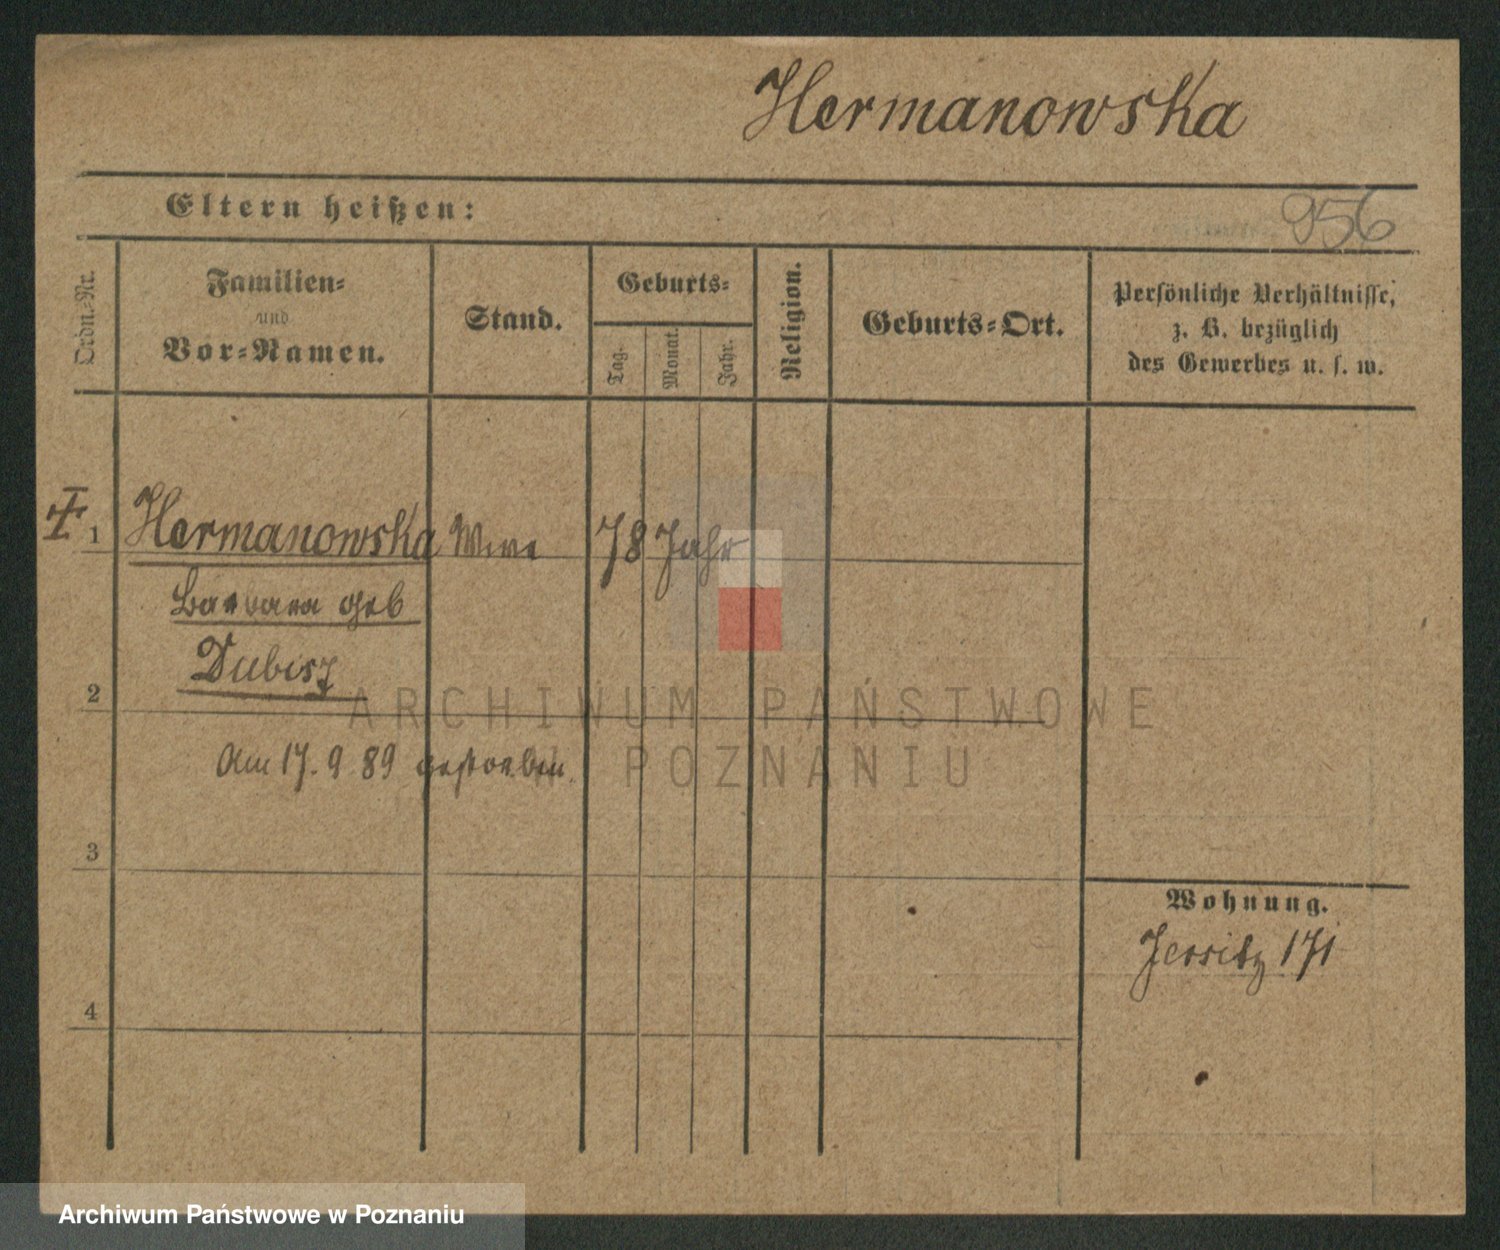 Hermanowska
Eltern heißen:
956
Ordn.-Nr.
Familien-
und
Vor-Namen.
Stand.
Geburts-
Tag.
Monat.
Jahr.
Religion.
Geburts-Ort.
Persönliche Verhältnisse,
z. B. bezüglich
des Gewerbes u. s. w.
1 Hermanowska Wwe 78 Jahr
Barbara geb
Dubisz
2
Am 17. 9 89 gestorben.
3
Wohnung.
Jersitz 171
4
ARCHIWUM PAŃSTWOWE
W POZNANIU
Archiwum Państwowe w Poznaniu